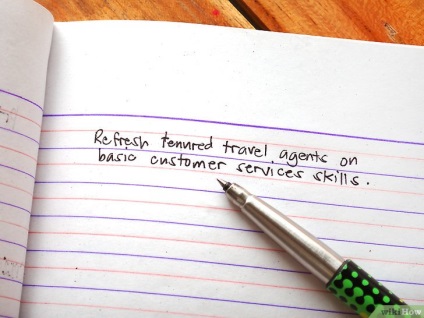 Refresh tenured travel agents on
basic customer services skills.
wikiHow